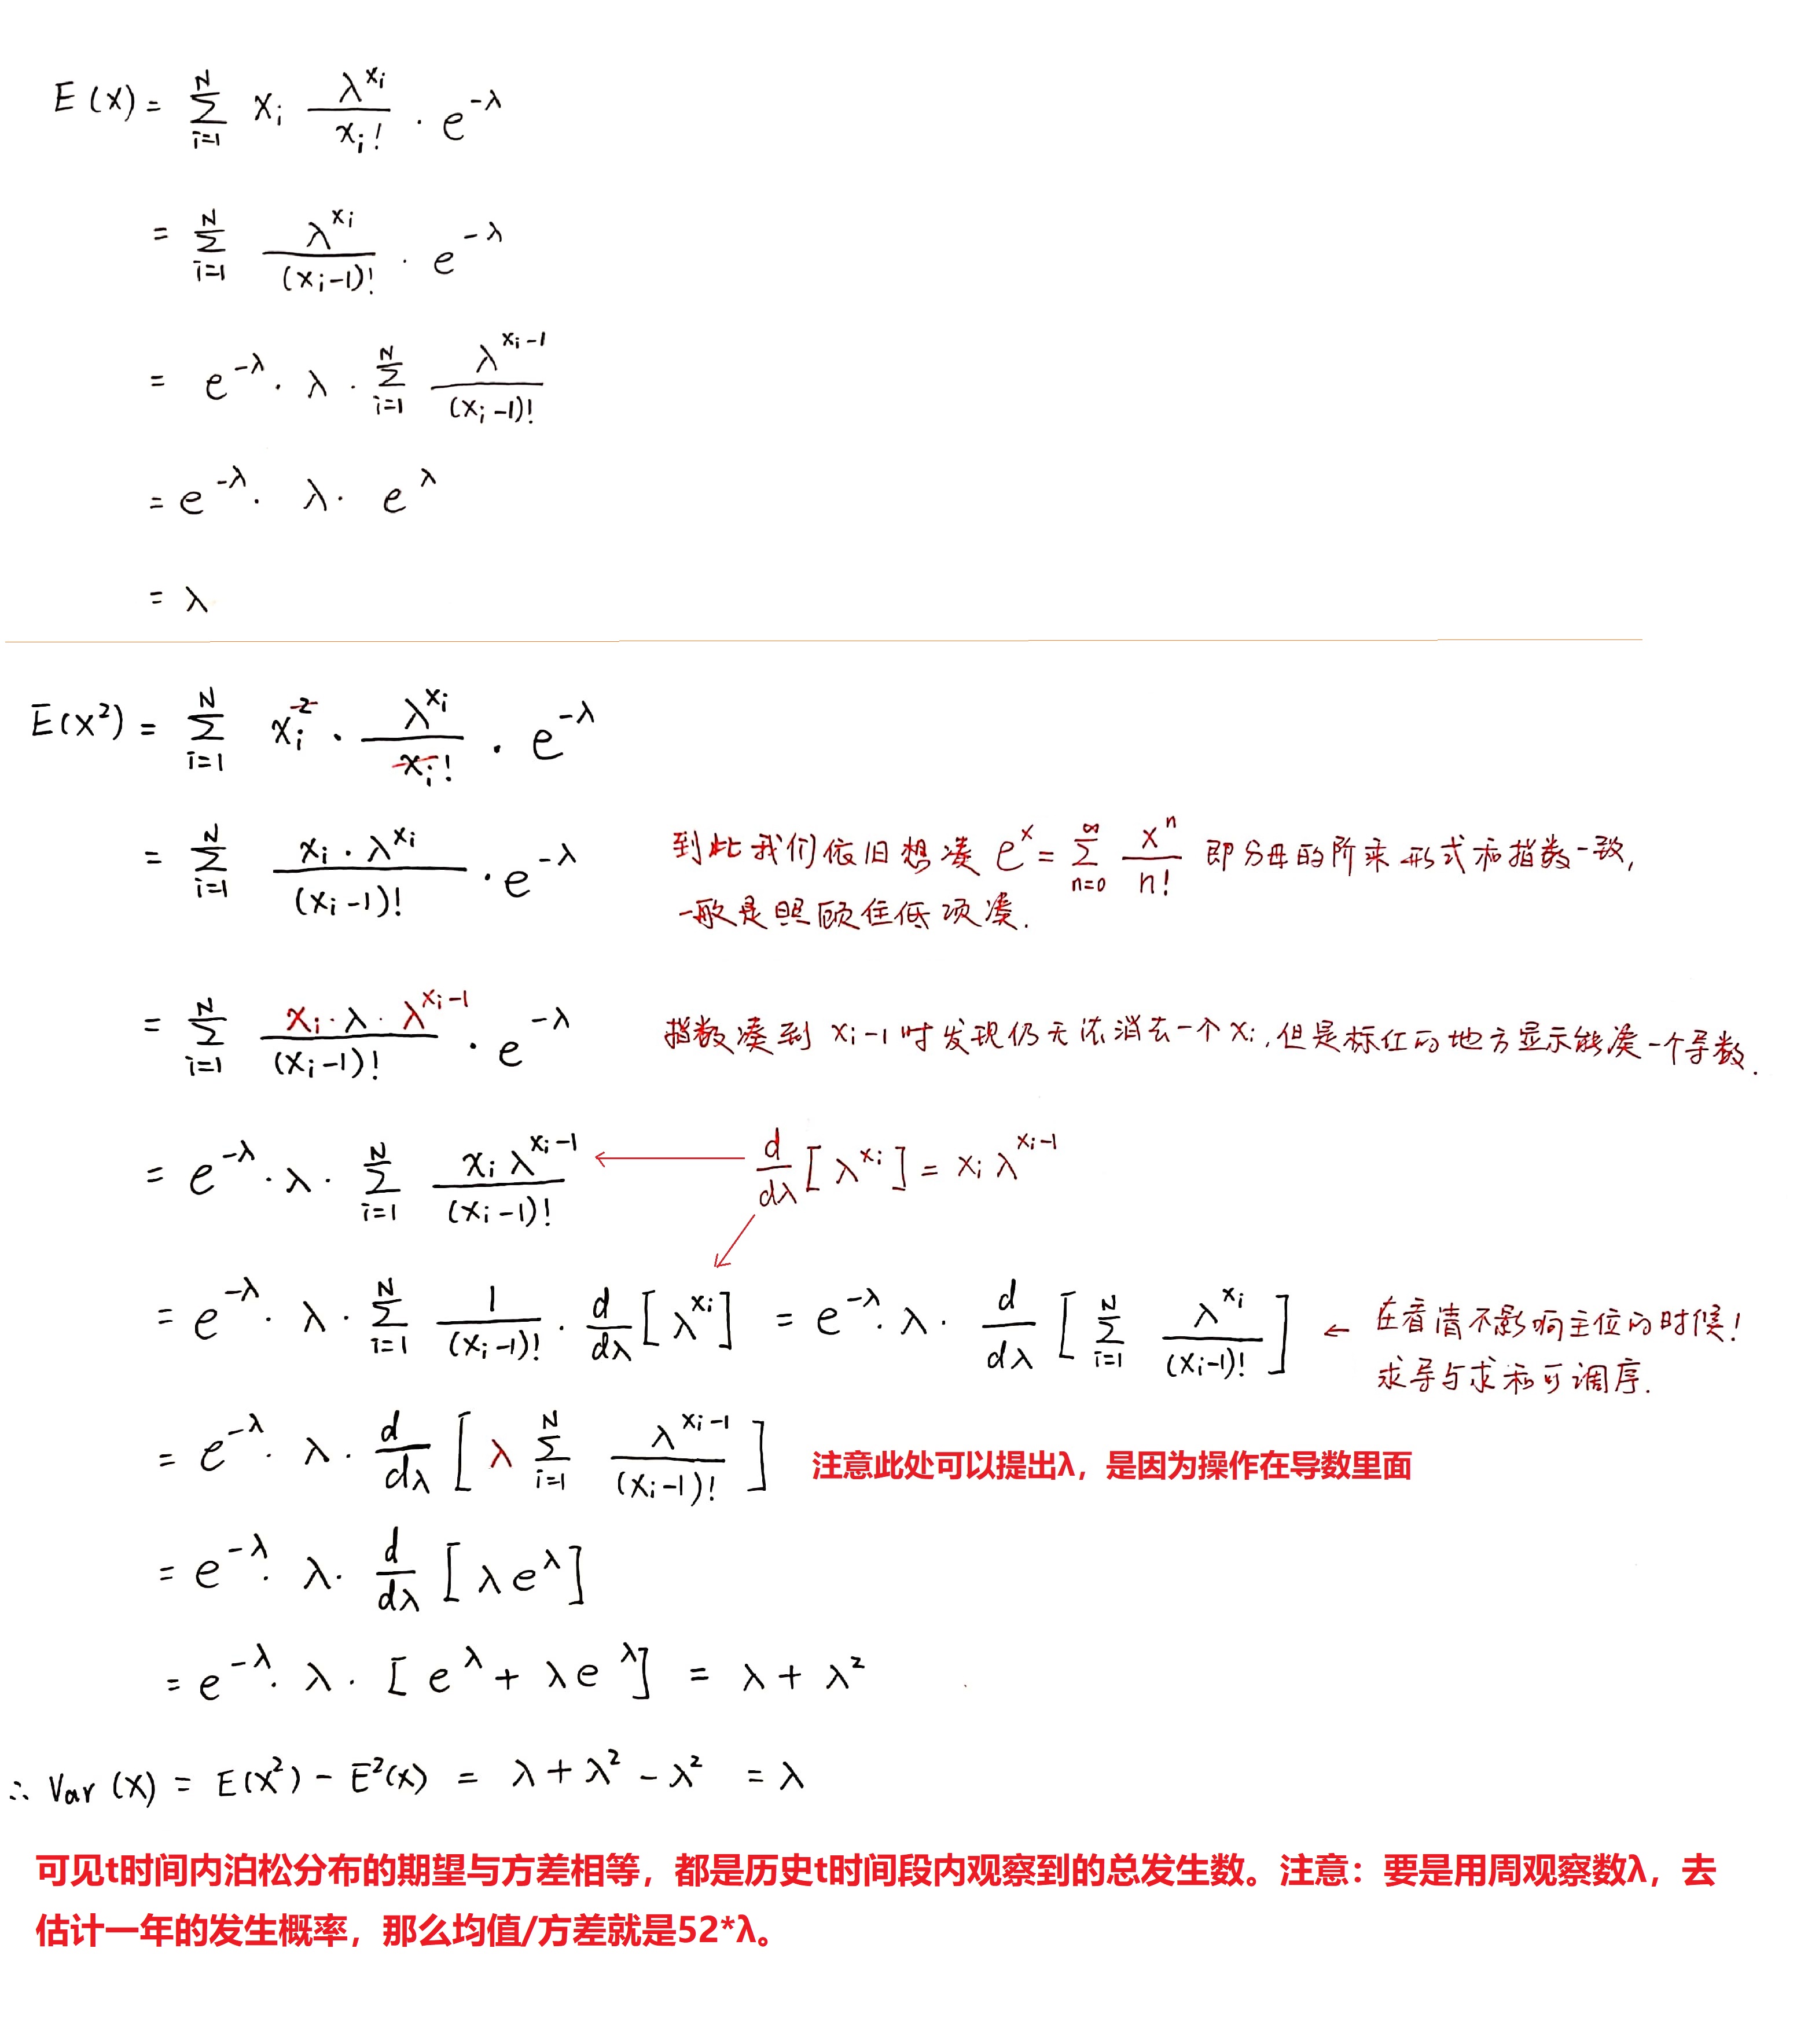 E(X) = \sum_{i=1}^{N} x_i \frac{λ^{x_i}}{x_i!} · e^{-λ}
= \sum_{i=1}^{N} \frac{λ^{x_i}}{(x_i-1)!} · e^{-λ}
= e^{-λ} · λ · \sum_{i=1}^{N} \frac{λ^{x_i-1}}{(x_i-1)!}
= e^{-λ} · λ · e^{λ}
= λ
E(X^2) = \sum_{i=1}^{N} x_i^2 · \frac{λ^{x_i}}{x_i!} · e^{-λ}
= \sum_{i=1}^{N} \frac{x_i · λ^{x_i}}{(x_i-1)!} · e^{-λ} 到此我们依旧想凑 e^x = \sum_{n=0}^{∞} \frac{x^n}{n!} 即分母的阶乘形式和指数一致,
一般是照顾住低项凑.
= \sum_{i=1}^{N} \frac{x_i · λ · λ^{x_i-1}}{(x_i-1)!} · e^{-λ} 指数凑到 x_i-1 时发现仍无法消去一个 x_i, 但是标红的地方显示能凑一个导数.
= e^{-λ} · λ · \sum_{i=1}^{N} \frac{x_i λ^{x_i-1}}{(x_i-1)!} ← \frac{d}{dλ}[λ^{x_i}] = x_i λ^{x_i-1}
= e^{-λ} · λ · \sum_{i=1}^{N} \frac{1}{(x_i-1)!} · \frac{d}{dλ}[λ^{x_i}] = e^{-λ} · λ · \frac{d}{dλ}[\sum_{i=1}^{N} \frac{λ^{x_i}}{(x_i-1)!}] ← 在看清不影响主位的时候!
求导与求和可调序.
= e^{-λ} · λ · \frac{d}{dλ}[λ \sum_{i=1}^{N} \frac{λ^{x_i-1}}{(x_i-1)!}] 注意此处可以提出λ，是因为操作在导数里面
= e^{-λ} · λ · \frac{d}{dλ}[λ e^{λ}]
= e^{-λ} · λ · [e^{λ} + λe^{λ}] = λ + λ^2
∴ Var(X) = E(X^2) - E^2(X) = λ + λ^2 - λ^2 = λ
可见t时间内泊松分布的期望与方差相等，都是历史t时间段内观察到的总发生数。注意：要是用周观察数λ，去
估计一年的发生概率，那么均值/方差就是52*λ。